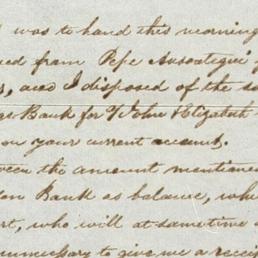 was to hand this morning
from Pepe
and I disposed of the
Bank for John Elizabeth
on your current account.
the amount mentione
Bank as balance, whi
who will at sametime
unnecessary to give me a recei